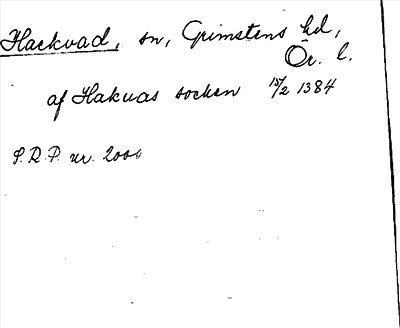 Hackvad, sn, Grimstens hd,
Ör. l.
af Hakuas socken 15/2 1384
S.R.P. nr. 2000